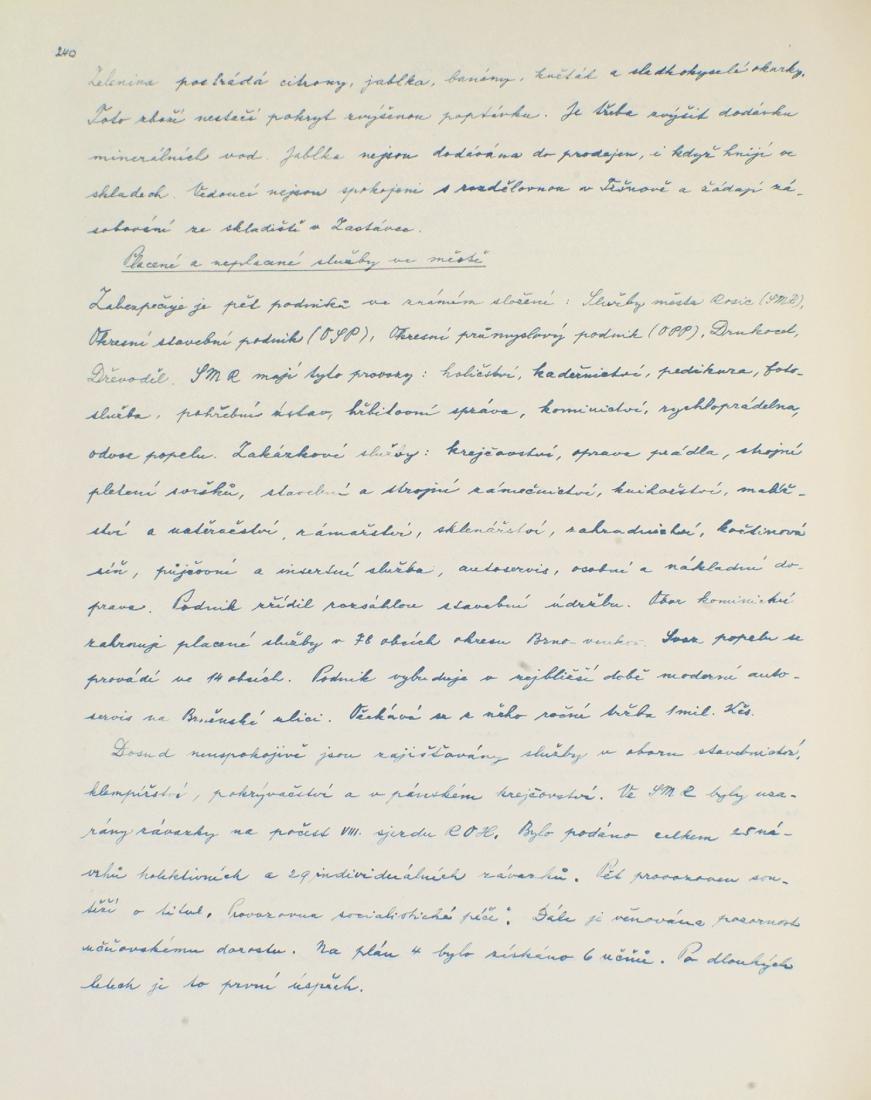 240
Zelenina postrádá citrony, jablka, banány, květák a sladkokyselé okurky.
Toto zboží nestačí pokrýt zvýšenou poptávku. Je třeba zvýšit dodávku
minerálních vod. Jablka nejsou dodávána do prodejen, i když hnijí ve
skladech. Vedoucí nejsou spokojeni s rozdělovnou v Tišnově a žádají zá-
sobování ze skladiště v Zastávce.
Placené a neplacené služby ve městě
Zabezpečuje je pět podniků ve známém složení: Služby města Rosic (SMR),
Okresní stavební podnik (OSP), Okresní průmyslový podnik (OPP), Drukocel,
Dřevoděl. SMR mají tyto provozy: holičství, kadeřnictví, pedikura, foto-
služba, pohřební ústav, hřbitovní správa, kominictví, rychloprádelna,
odvoz popelu. Zakázkové služby: krejčovství, oprava prádla, strojní
pletení svršků, stavební a strojní zámečnictví, knihařství, malíř-
ství a natěračství, rámařství, sklenářství, zahradnictví, květinová
síň, půjčovní a insertní služba, autoservis, osobní a nákladní do-
prava. Podnik zřídil rozsáhlou stavební údržbu. Obor kominictví
zahrnuje placené služby v 76 obcích okresu Brno-venkov. Svoz popelu se
provádí ve 14 obcích. Podnik vybuduje v nejbližší době moderní auto-
servis na Brněnské ulici. Očekává se z něho roční tržba 1 mil. Kčs.
Dosud neuspokojivě jsou zajišťovány služby v oboru stavebnictví,
klempířství, pokrývačství a v pánském krejčovství. Ve SMR byly uza-
vřány závazky na počest VIII. sjezdu ROH. Bylo podáno celkem 25 ná-
vrhů kolektivních a 29 individuálních závazků. Pět provozoven sou-
těží o titul „Provozovna socialistické péče". Dále je věnována pozornost
učňovskému dorostu. Na plán 4 bylo získáno 6 učňů. Po dlouhých
letech je to první úspěch.